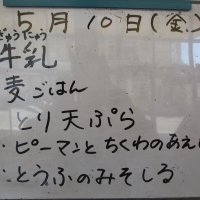 5月10日(金)
ぎゅうにゅう
牛乳
麦ごはん
とり天ぷら
・ピーマンとちくわのあえ
・とうふのみそしる